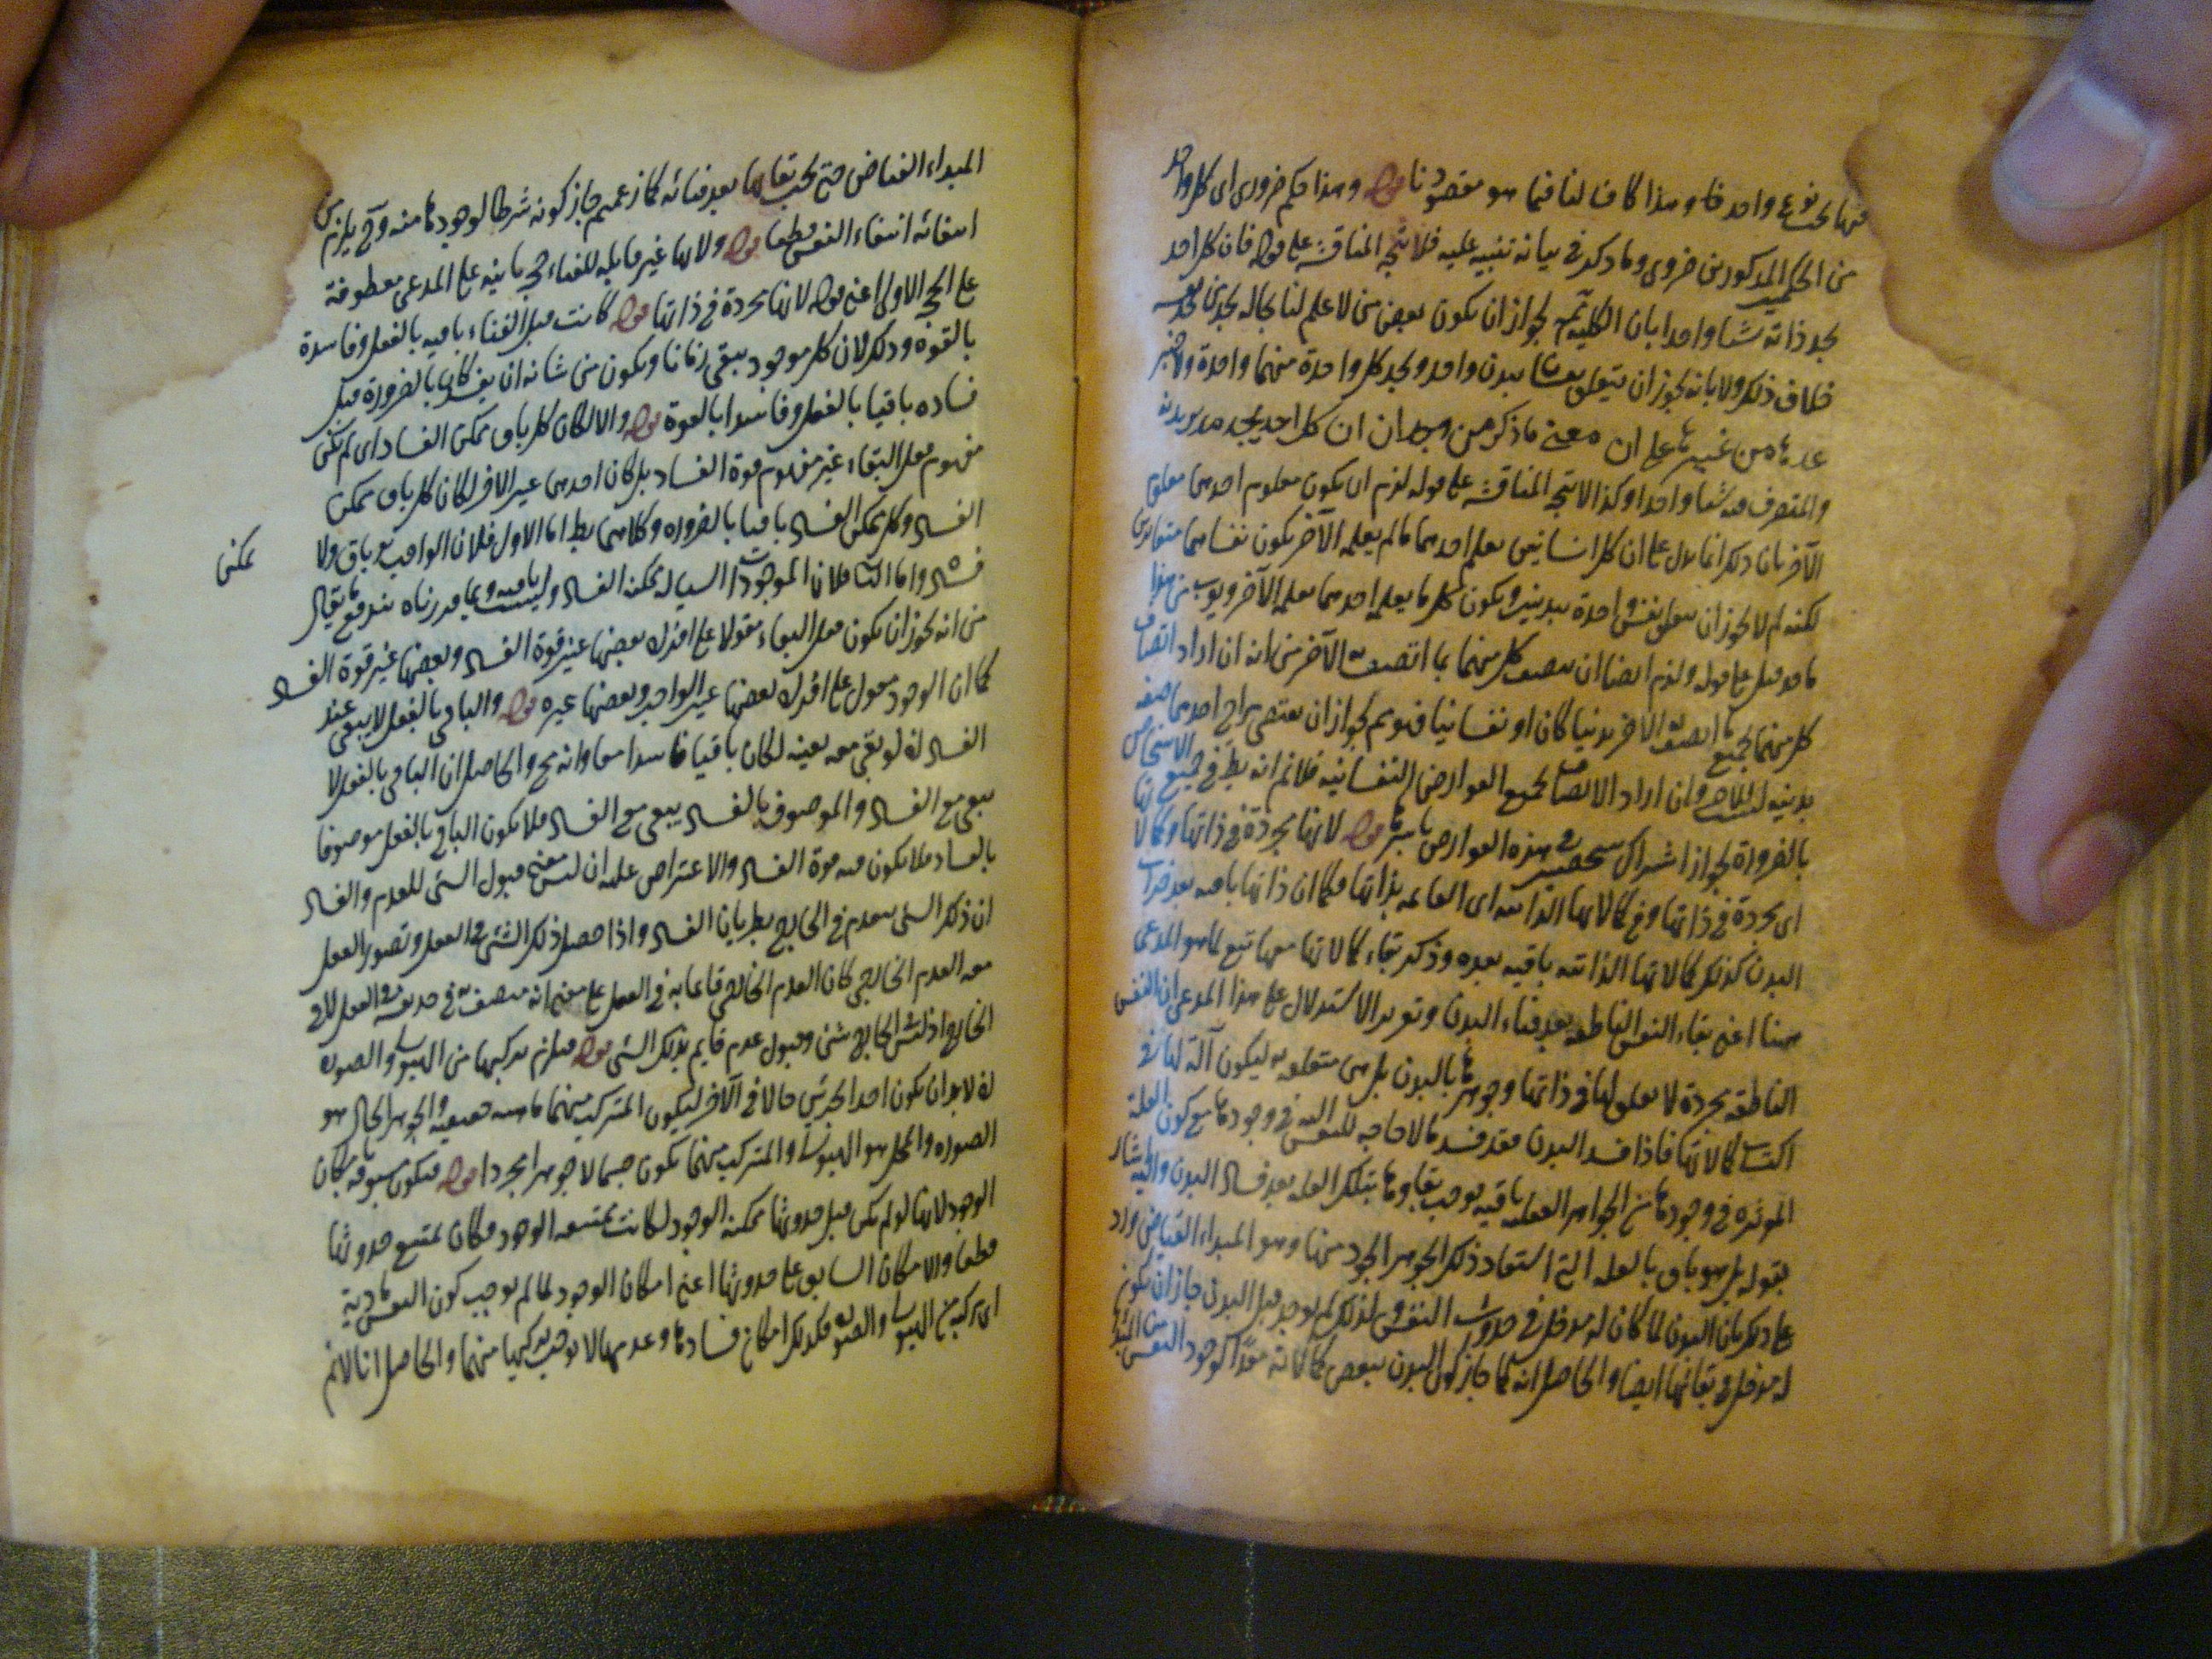 منها نوع واحد وهذا كاف لنا فيما هو مقصودنا قوله وهذا حكم ضروري اى كل واحد
من الحكمين المذكورين ضروري وما ذكر في بيانه تنبيه عليه فلا يتجه المناقشة على قوله فان كل احد
يجد ذاته شيئا واحدا بان الكلية لجواز ان يكون بعض من لا علم لنا بحاله يجد نفسه
خلاف ذلك ولا بانه يجوز ان يتعلق ببدن واحد ويجد كل واحدة منهما واحدة ولا خبر
من غيرها على ان معنى ما ذكر من وجدان ان كل احد يجد مدبر بدنه
والمتصرف فيه شيئا واحدا وكذا لا يتجه المناقشة على قوله لزم ان يكون معلوم احدهما معلوم
الآخر بان ذلك انما يدل على ان كل انسانين يعلم احدهما ما لم يعلمه الآخر يكون نفساهما متغايرين
لكنه لم لا يجوز ان يتعلق نفس واحدة ببدنين ويكون كل ما يعلمه احدهما يعلمه الآخر ويقرب من هذا
ما قد قيل على قوله ولزم ايضا ان يتصف كل منهما بما اتصف به الآخر من انه ان اراد اتصاف
كل منهما بجميع ما اتصف به الآخر بدنيا كان او نفسانيا فتوهم لجواز ان يقتضي مزاج احدهما صفة
بدنية وان اراد الاتصاف بجميع العوارض النفسانية فلا نم انه بط في جميع الاشخاص
بالضرورة لجواز اشتراك شخصين في هذه العوارض باسرها قوله لانها مجردة في ذاتها وكمالاتها
اى مجردة في ذاتها وفي كمالاتها الذاتية اى القائمة بذاتها فكما ان ذاتها باقية بعد خراب
البدن كذلك كمالاتها الذاتية باقية بعده وذكر بقاء كمالاتها ههنا تبع لما هو المدعى
ههنا اعنى بقاء النفس الناطقة بعد فناء البدن وتقرير الاستدلال على هذا المدعى ان النفس
الناطقة مجردة لا تعلق لها في ذاتها وجوهرها بالبدن بل هي متعلقة به ليكون آلة لها في
اكتساب كمالاتها فاذا فسد البدن فقد فسد ما لا حاجة للنفس اليه في وجودها مع كون العلة
المؤثرة في وجودها من الجواهر العقلية باقية يوجب بقاءها بتلك العلة بعد فساد البدن واليه اشار
بقوله بل هو باق بالعلة التي استفاد ذلك الجوهر المجرد منها وهو المبداء الفياض ورد
على ذلك بان البدن لما كان له مدخل في حدوث النفس ولذلك لم يوجد قبل البدن جاز ان يكون
له مدخل في بقائها ايضا والحاصل انه كما جاز كون البدن ببعض كمالاته معدا لوجود النفس من المبداء
المبداء الفياض حتى يجب بقاؤها بعد فنائه كما زعمتم جاز كونه شرطا لوجودها منه وح يلزم من
انتفائه انتفاء النفس قطعا قوله ولانها غير قابلة للفناء حجة ثانية على المدعى معطوفة
على الحجة الاولى اعنى قوله لانها مجردة في ذاتها قوله كانت قبل الفناء باقية بالفعل وفاسدة
بالقوة وذلك لان كل موجود يبقى زمانا ويكون من شانه ان يفسد كان بالضرورة قبل
فساده باقيا بالفعل وفاسدا بالقوة قوله والا لكان كل باق ممكن الفساد اى لم يكن
مفهوم فعل البقاء غير مفهوم قوة الفساد بل كان احدهما عين الآخر لكان كل باق ممكن
الفساد وكل ممكن الفساد باقيا بالضرورة وكلاهما بط اما الاول فلان الواجب باق ولا
ممكن
فساد واما الثاني فلان الموجودات السيالة ممكنة الفساد وليست باقية وبما قررناه يندفع ما يقال
من انه يجوز ان يكون فعل البقاء مقولا على افراد بعضها عين قوة الفساد وبعضها غير قوة الفساد
كما ان الوجود محمول على افراد بعضها عين الواجب وبعضها غيره قوله والباقي بالفعل لا يبقى عند
الفساد لانه لو بقي معه بعينه لكان باقيا فاسدا معا وانه مح والحاصل ان الباقي بالفعل لا
يبقى مع الفساد والموصوف بالفساد يبقى مع الفساد فلا يكون الباقي بالفعل موصوفا
بالفساد فلا يكون فيه قوة الفساد والاعتراض عليه ان ليس معنى قبول الشئ للعدم والفساد
ان ذلك الشئ ينعدم في الخارج بطريان الفساد واذا حصل ذلك الشئ في العقل وتصور العقل
معه العدم الخارجي كان العدم الخارجي قائما به في العقل على معنى انه متصف به في حد نفسه في العقل لا في
الخارج اذ ليس في الخارج شئ وقبول عدم قائم بذلك الشئ قوله فيلزم تركيبها من الهيولى والصورة
لانه لا بد ان يكون احد الجزئين حالا في الآخر ليكون المتركب منهما ماهية حقيقية والجوهر الحال هو
الصورة والمحل هو الهيولى والمتركب منهما يكون جسما لا جوهرا مجردا قوله فيكون مسبوقة بامكان
الوجود لانها لو لم يكن قبل حدوثها ممكنة الوجود لكانت ممتنعة الوجود فكان يمتنع حدوثها
قطعا والامكان السابق على حدوثها اعنى امكان الوجود لما لم يوجب كون النفس مادية
اى مركبة من الهيولى والصورة فكذلك امكان فسادها وعدمها لا يوجب تركيبها منهما والحاصل انا لا نم